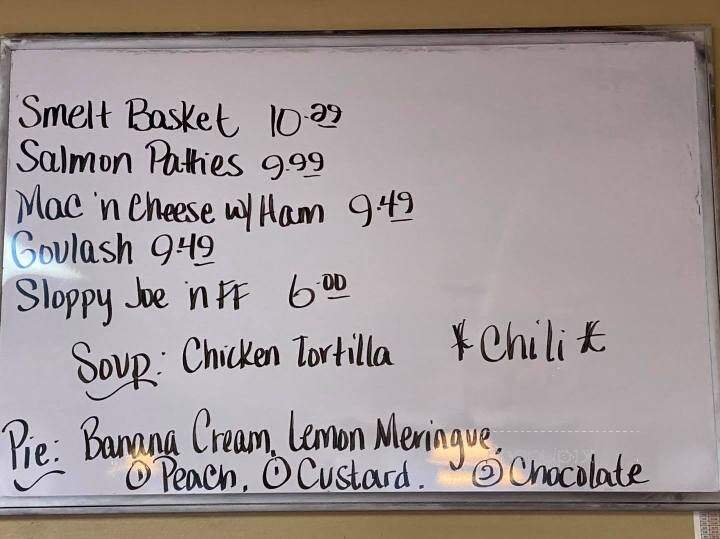 Smelt Basket 10.29
Salmon Patties 9.99
Mac 'n Cheese w/ Ham 9.49
Goulash 9.49
Sloppy Joe 'n FF 6.00
Soup: Chicken Tortilla *Chili*
Pie: Banana Cream, Lemon Meringue,
① Peach, ① Custard. ② Chocolate